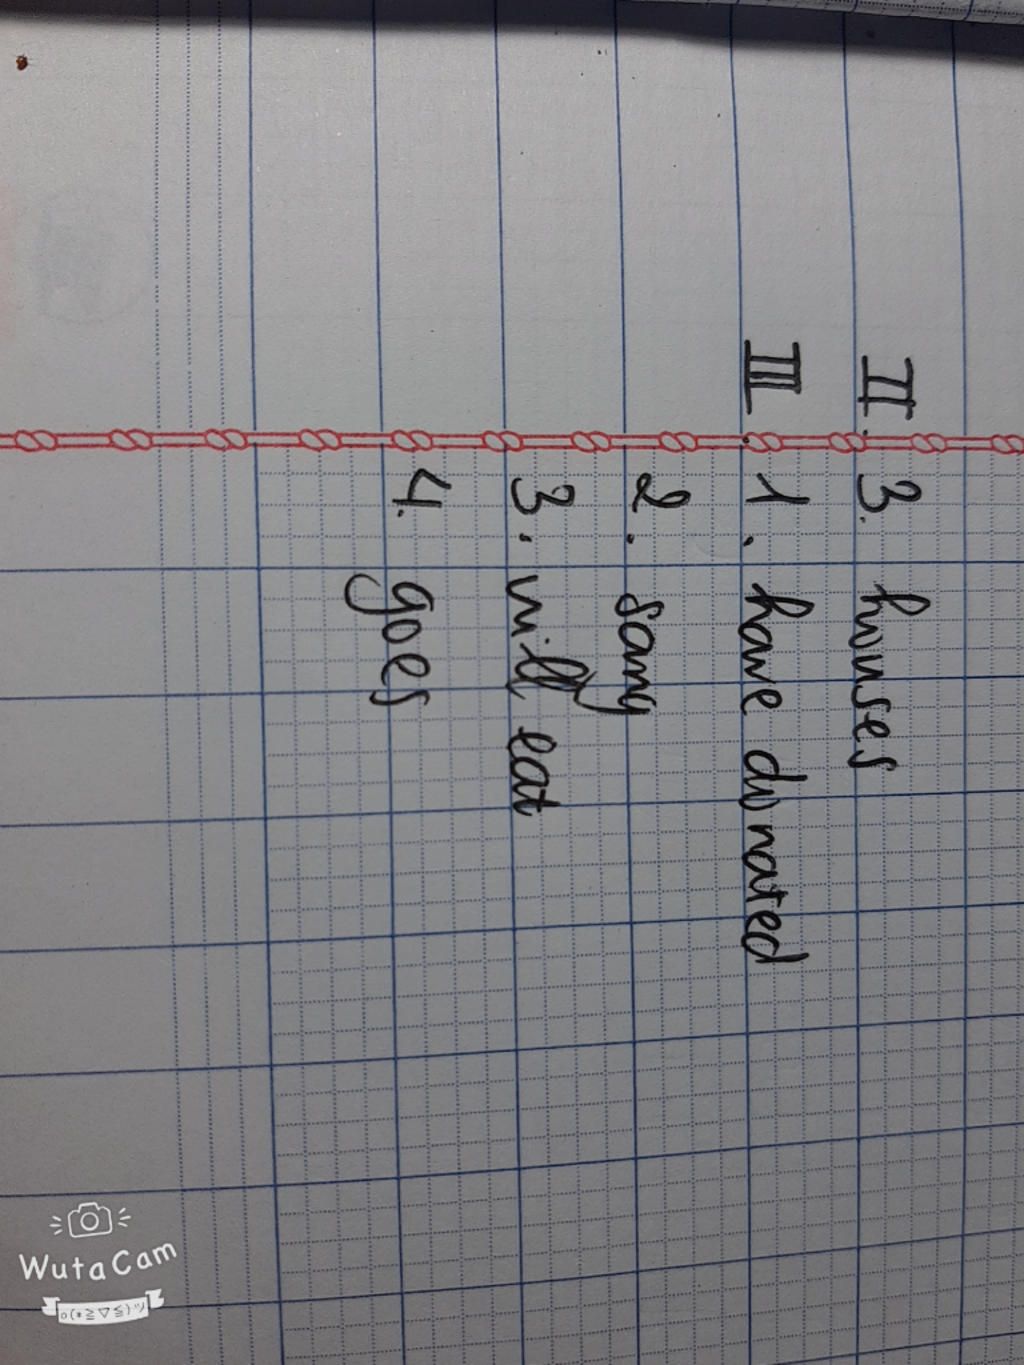 II. 3. houses
III. 1. have donated
2. sang
3. will eat
4. goes
WutaCam
o(*≧▽≦)ツ